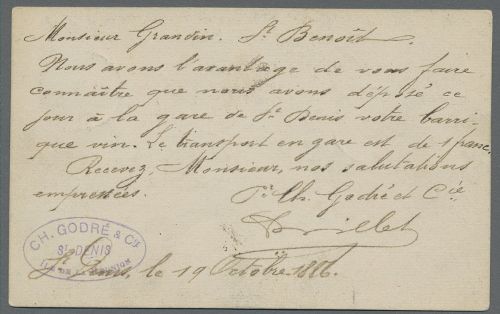 Monsieur Grandin. St Benoît.
Nous avons l'avantage de vous faire
connaître que nous avons déposé ce
jour à la gare de St Denis votre barri-
que vin. Le transport en gare est de 1 franc.
Recevez, Monsieur, nos salutations
empressées.
Pr Ch. Godré et Cie
CH. GODRÉ & Cie
St DENIS
ILE DE LA RÉUNION
St Denis, le 19 Octobre 1886.